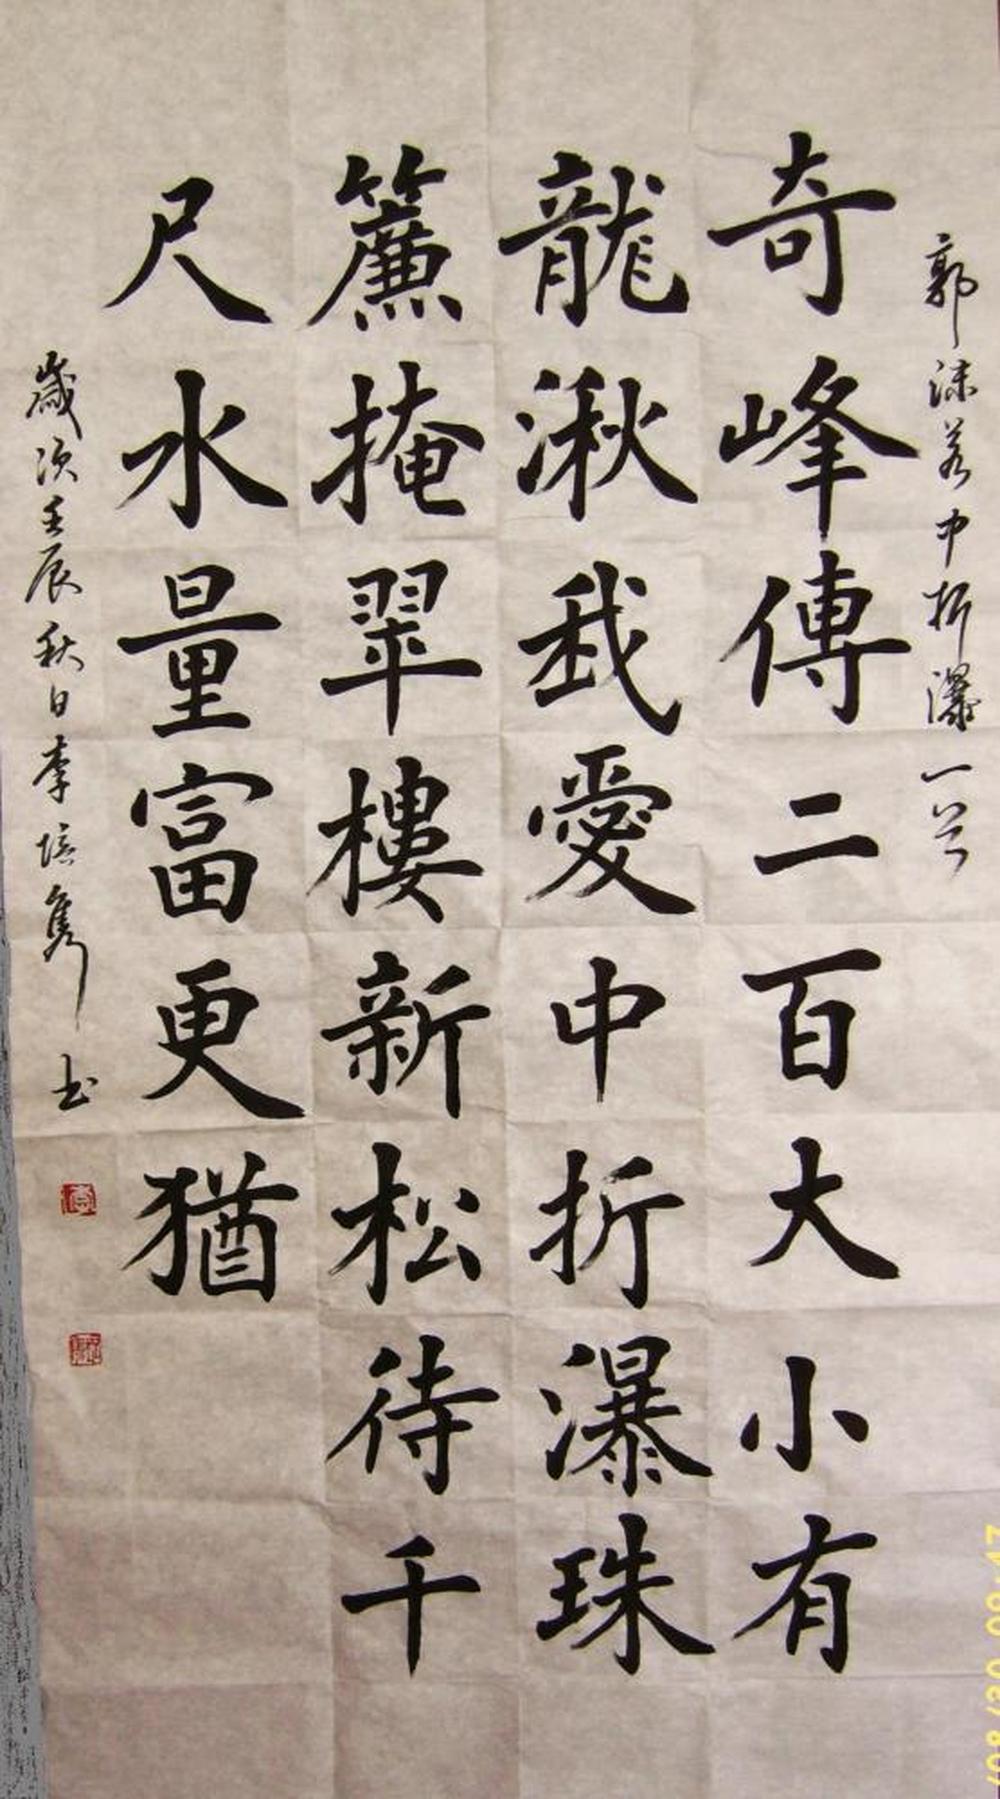 郭沫若中折瀑一首
奇峰傳二百大小有
龍湫我愛中折瀑珠
簾掩翠樓新松待千
尺水量富更猶
歲次壬辰秋日李培隽书